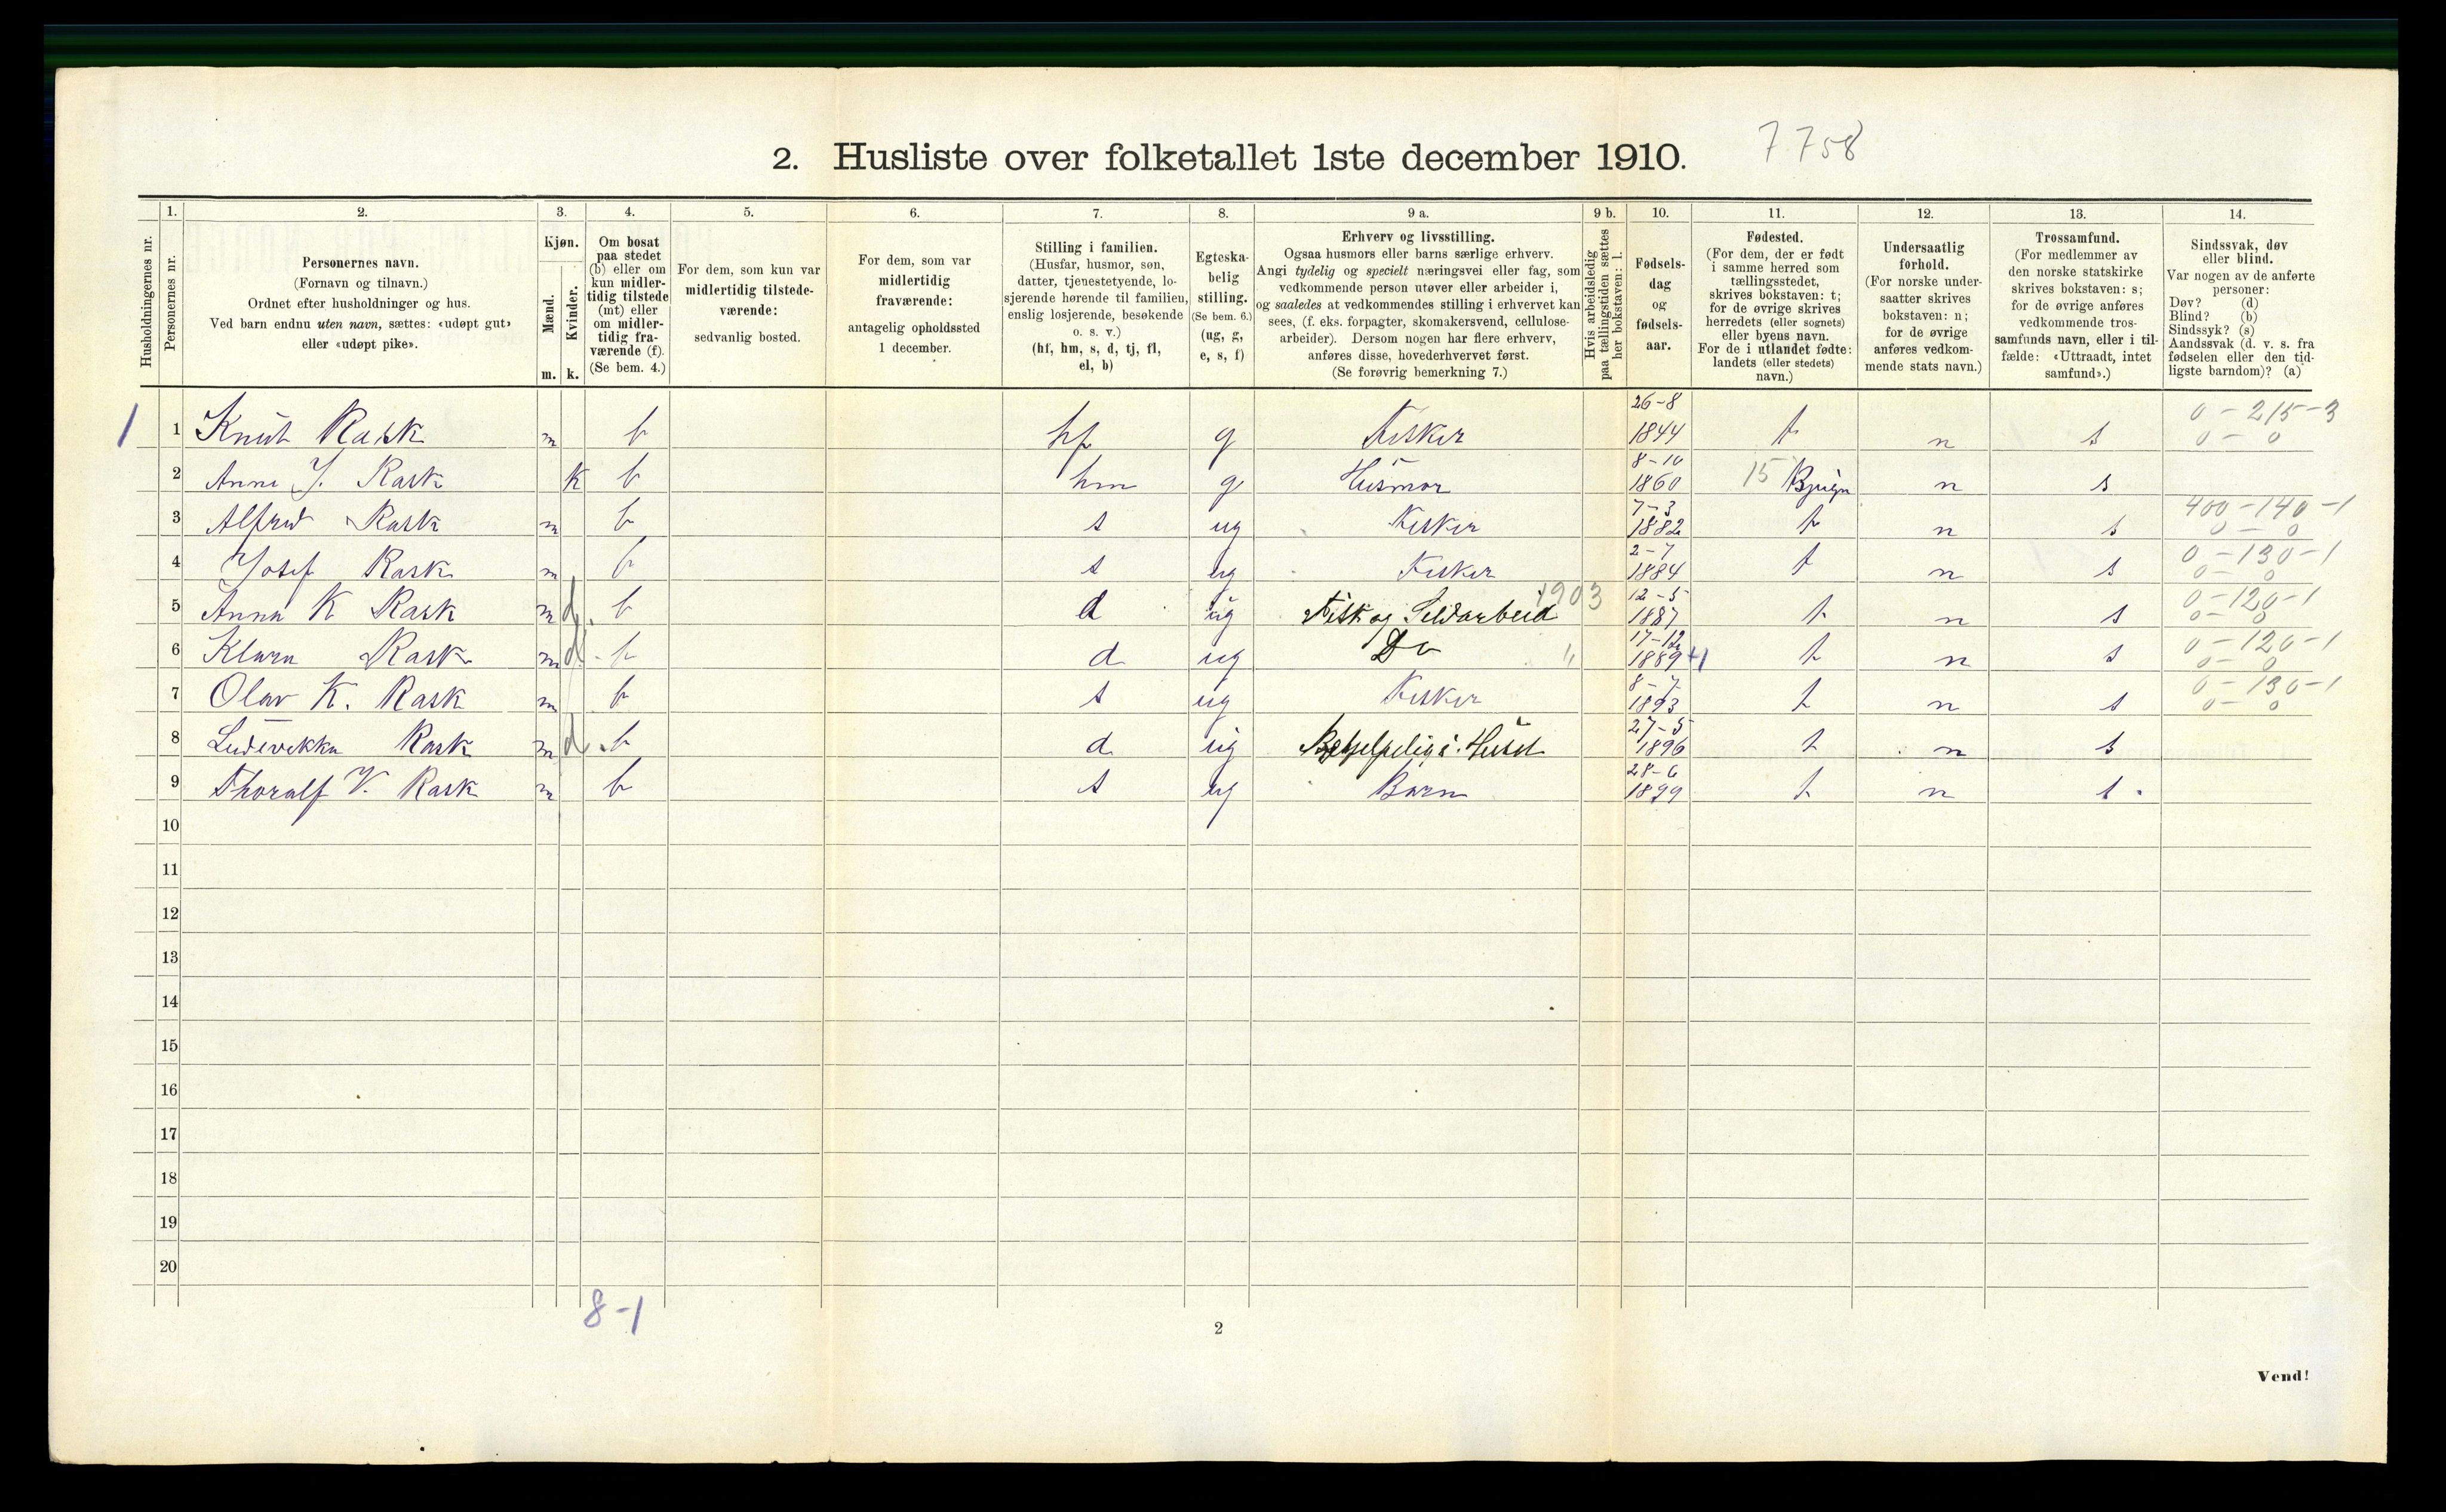 2. Husliste over folketallet 1ste december 1910. 7758
Husholdningernes nr.
1. Personernes nr.
2. Personernes navn.
(Fornavn og tilnavn.)
Ordnet efter husholdninger og hus.
Ved barn endnu uten navn, sættes: «udøpt gut»
eller «udøpt pike».
3. Kjøn.
Mænd. Kvinder.
m. k.
4. Om bosat
paa stedet
(b) eller om
kun midler-
tidig tilstede
(mt) eller
om midler-
tidig fra-
værende (f).
(Se bem. 4.)
5. For dem, som kun var
midlertidig tilstede-
værende:
sedvanlig bosted.
6. For dem, som var
midlertidig
fraværende:
antagelig opholdssted
1 december.
7. Stilling i familien.
(Husfar, husmor, søn,
datter, tjenestetyende, lo-
sjerende hørende til familien,
enslig losjerende, besøkende
o. s. v.)
(hf, hm, s, d, tj, fl,
el, b)
8. Egteska-
belig
stilling.
(Se bem. 6.)
(ug, g,
e, s, f)
9 a. Erhverv og livsstilling.
Ogsaa husmors eller barns særlige erhverv.
Angi tydelig og specielt næringsvei eller fag, som
vedkommende person utøver eller arbeider i,
og saaledes at vedkommendes stilling i erhvervet kan
sees, (f. eks. forpagter, skomakersvend, cellulose-
arbeider). Dersom nogen har flere erhverv,
anføres disse, hovederhvervet først.
(Se forøvrig bemerkning 7.)
9 b. Hvis arbeidsledig
paa tællingstiden sættes
her bokstaven: l.
10. Fødsels-
dag
og
fødsels-
aar.
11. Fødested.
(For dem, der er født
i samme herred som
tællingsstedet,
skrives bokstaven: t;
for de øvrige skrives
herredets (eller sognets)
eller byens navn.
For de i utlandet fødte:
landets (eller stedets)
navn.)
12. Undersaatlig
forhold.
(For norske under-
saatter skrives
bokstaven: n;
for de øvrige
anføres vedkom-
mende stats navn.)
13. Trossamfund.
(For medlemmer av
den norske statskirke
skrives bokstaven: s;
for de øvrige anføres
vedkommende tros-
samfunds navn, eller i til-
fælde: «Uttraadt, intet
samfund».)
14. Sindssvak, døv
eller blind.
Var nogen av de anførte
personer:
Døv? (d)
Blind? (b)
Sindssyk? (s)
Aandssvak (d. v. s. fra
fødselen eller den tid-
ligste barndom)? (a)
1 1 Knut Rask m b hf g Fisker 26-8 1844 t n s 0-215-3 0-0
2 Anne J. Rask k b hm g Husmor 8-10 1860 15 Bjugn n s
3 Alfred Rask m b s ug Fisker 7-3 1882 t n s 400-140-1 0-0
4 Josef Rask m b s ug Fisker 2-7 1884 t n s 0-130-1 0-0
5 Anna K Rask m d. b d ug Fisk og Sildarbeid 1903 12-5 1887 t n s 0-120-1 0-0
6 Klara Rask m d b d ug Do " 17-12 1889 +1 t n s 0-120-1 0-0
7 Olav K. Rask m b s ug Fisker 8-7 1893 t n s 0-130-1 0-0
8 Ludevikka Rask m d b d ug i Huset 27-5 1896 t n s
9 Thoralf V. Rask m b s ug Barn 28-6 1899 t n s
10
11
12
13
14
15
16
17
18
19
20
8-1
2
Vend!